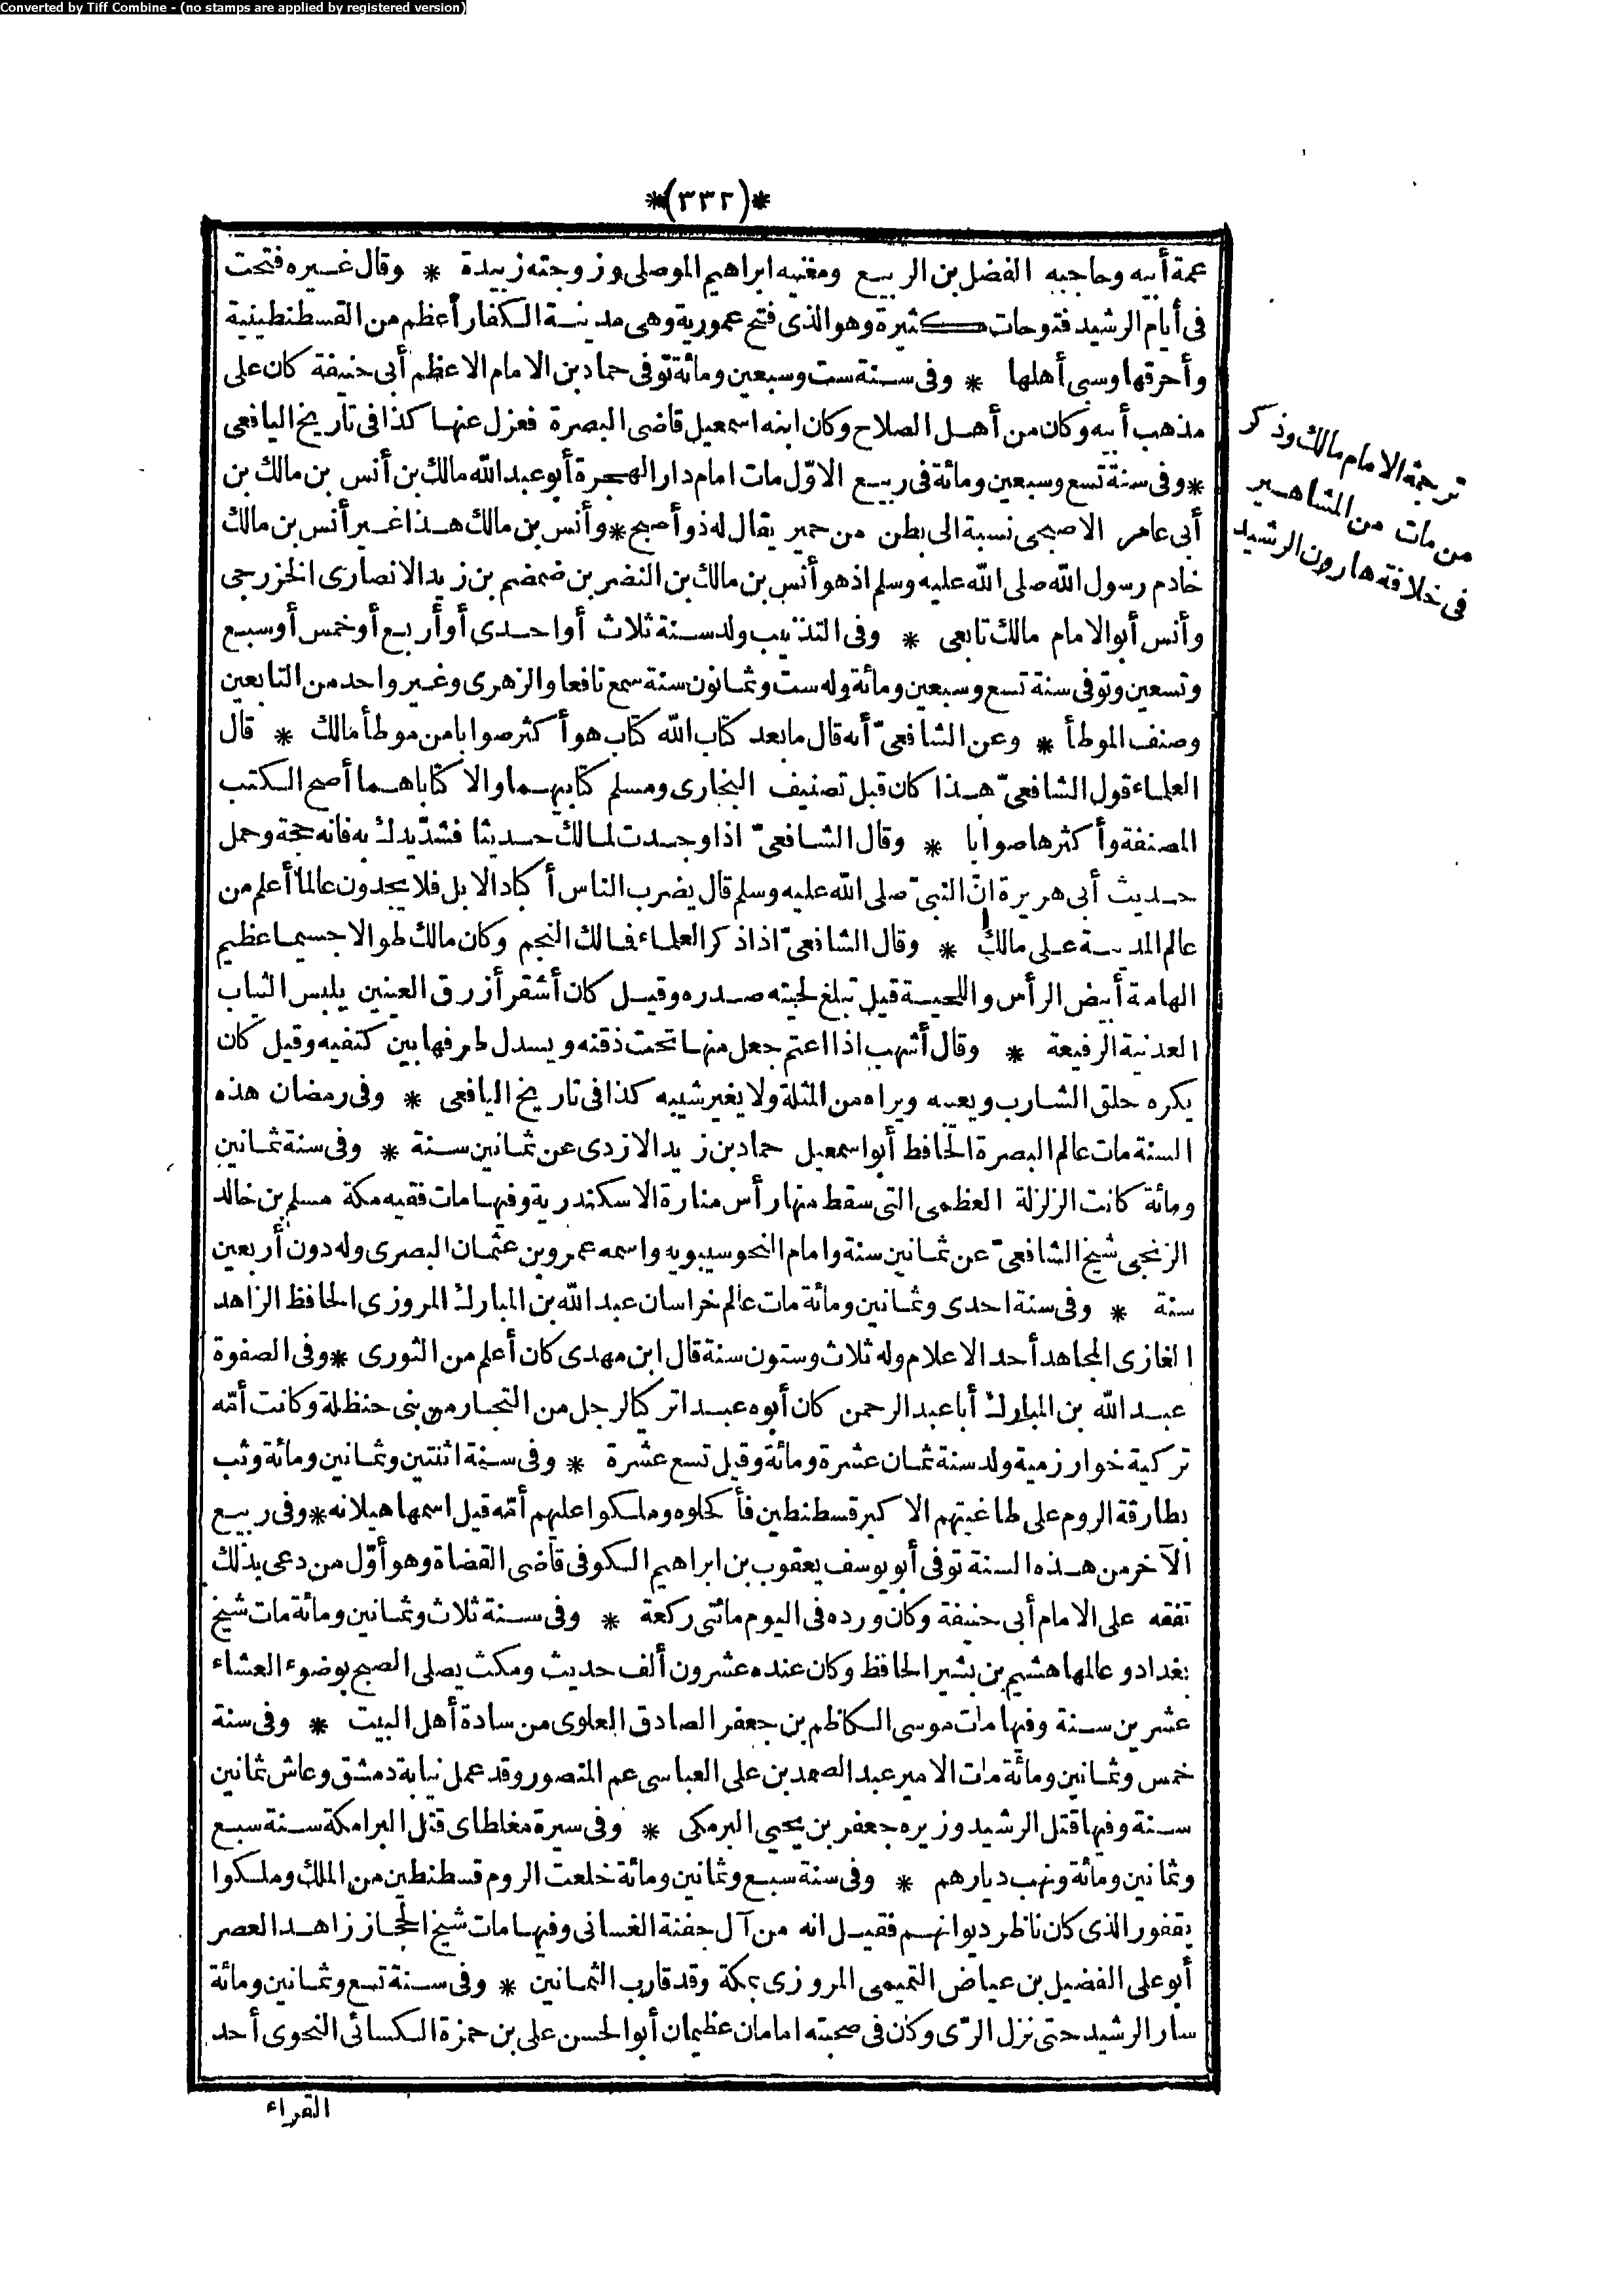 Converted by Tiff Combine - (no stamps are applied by registered version)
*(٣٣٢)*
عمة أبيه وحاجبه الفضل بن الربيع ومغنيه ابراهيم الموصلى وزوجته زبيدة * وقال غيره فتحت
فى أيام الرشيد فتوحات كثيرة وهو الذى فتح عمورية وهى مدينة الكفار أعظم من القسطنطينية
وأحرقها وسبى أهلها * وفى سنة ست وسبعين ومائة توفى حماد بن الامام الاعظم أبى حنيفة كان على
مذهب أبيه وكان من أهل الصلاح وكان ابنه اسمعيل قاضى البصرة فعزل عنها كذا فى تاريخ اليافعى
*وفى سنة تسع وسبعين ومائة فى ربيع الاوّل مات امام دار الهجرة أبو عبد الله مالك بن أنس بن مالك بن
أبى عامر الاصبحى نسبة الى بطن من حمير يقال له ذو أصبح *وأنس بن مالك هذا غير أنس بن مالك
خادم رسول الله صلى الله عليه وسلم اذ هو أنس بن مالك بن النضر بن ضمضم بن زيد الانصارى الخزرجى
وأنس أبو الامام مالك تابعى * وفى التذنيب ولد سنة ثلاث أو احدى أو أربع أو خمس أو سبع
وتسعين وتوفى سنة تسع وسبعين ومائة وله ست وثمانون سنة سمع نافعا والزهرى وغير واحد من التابعين
وصنف الموطأ * وعن الشافعىّ أنه قال ما بعد كتاب الله كتاب هو أكثر صوابا من موطأ مالك * قال
العلماء قول الشافعىّ هذا كان قبل تصنيف البخارى ومسلم كتابيهما والا كتاباهما أصح الكتب
المصنفة وأكثرها صوابا * وقال الشافعىّ اذا وجدت لمالك حديثا فشدّ يدك به فانه حجة وحمل
حديث أبى هريرة انّ النبىّ صلى الله عليه وسلم قال يضرب الناس أكباد الابل فلا يجدون عالما أعلم من
عالم المدينة على مالك * وقال الشافعىّ اذا ذكر العلماء فمالك النجم وكان مالك طوالا جسيما عظيم
الهامة أبيض الرأس واللحية قيل تبلغ لحيته صدره وقيل كان أشقر أزرق العينين يلبس الثياب
العدنية الرفيعة * وقال أشهب اذا اعتم جعل منها تحت ذقنه ويسدل طرفها بين كتفيه وقيل كان
يكره حلق الشارب ويعيبه ويراه من المثلة ولا يغير شيبه كذا فى تاريخ اليافعى * وفى رمضان هذه
السنة مات عالم البصرة الحافظ أبو اسمعيل حماد بن زيد الازدى عن ثمانين سنة * وفى سنة ثمانين
ومائة كانت الزلزلة العظمى التى سقط منها رأس منارة الاسكندرية وفيها مات فقيه مكة مسلم بن خالد
الزنجى شيخ الشافعىّ عن ثمانين سنة وامام النحو سيبويه واسمه عمرو بن عثمان البصرى وله دون أربعين
سنة * وفى سنة احدى وثمانين ومائة مات عالم خراسان عبد الله بن المبارك المروزى الحافظ الزاهد
الغازى المجاهد أحد الاعلام وله ثلاث وستون سنة قال ابن مهدى كان أعلم من الثورى *وفى الصفوة
عبد الله بن المبارك أبا عبد الرحمن كان أبوه عبدا تركيا لرجل من التجار من بنى حنظلة وكانت أمّه
تركية خوارزمية ولد سنة ثمان عشرة ومائة وقيل تسع عشرة * وفى سنة اثنتين وثمانين ومائة وثب
بطارقة الروم على طاغيتهم الاكبر قسطنطين فأكحلوه وملكوا عليهم أمّه قيل اسمها هيلانه *وفى ربيع
الآخر من هذه السنة توفى أبو يوسف يعقوب بن ابراهيم الكوفى قاضى القضاة وهو أوّل من دعى بذلك
تفقه على الامام أبى حنيفة وكان ورده فى اليوم مائتى ركعة * وفى سنة ثلاث وثمانين ومائة مات شيخ
بغداد وعالمها هشيم بن بشير الحافظ وكان عنده عشرون ألف حديث ومكث يصلى الصبح بوضوء العشاء
عشرين سنة وفيها مات موسى الكاظم بن جعفر الصادق العلوى من سادة أهل البيت * وفى سنة
خمس وثمانين ومائة مات الامير عبد الصمد بن على العباسى عم المنصور وقد عمل نيابة دمشق وعاش ثمانين
سنة وفيها قتل الرشيد وزيره جعفر بن يحيى البرمكى * وفى سيرة مغلطاى قتل البرامكة سنة سبع
وثمانين ومائة ونهب ديارهم * وفى سنة سبع وثمانين ومائة خلعت الروم قسطنطين من الملك وملكوا
يقفور الذى كان ناظر ديوانهم فقيل انه من آل جفنة الغسانى وفيها مات شيخ الحجاز زاهد العصر
أبو على الفضيل بن عياض التميمى المروزى بمكة وقد قارب الثمانين * وفى سنة تسع وثمانين ومائة
سار الرشيد حتى نزل الرّى وكان فى صحبته امامان عظيمان أبو الحسن على بن حمزة الكسائى النحوى أحد
القراء
ترجمة الامام مالك وذكر
من مات من المشاهير
فى خلافة هارون الرشيد